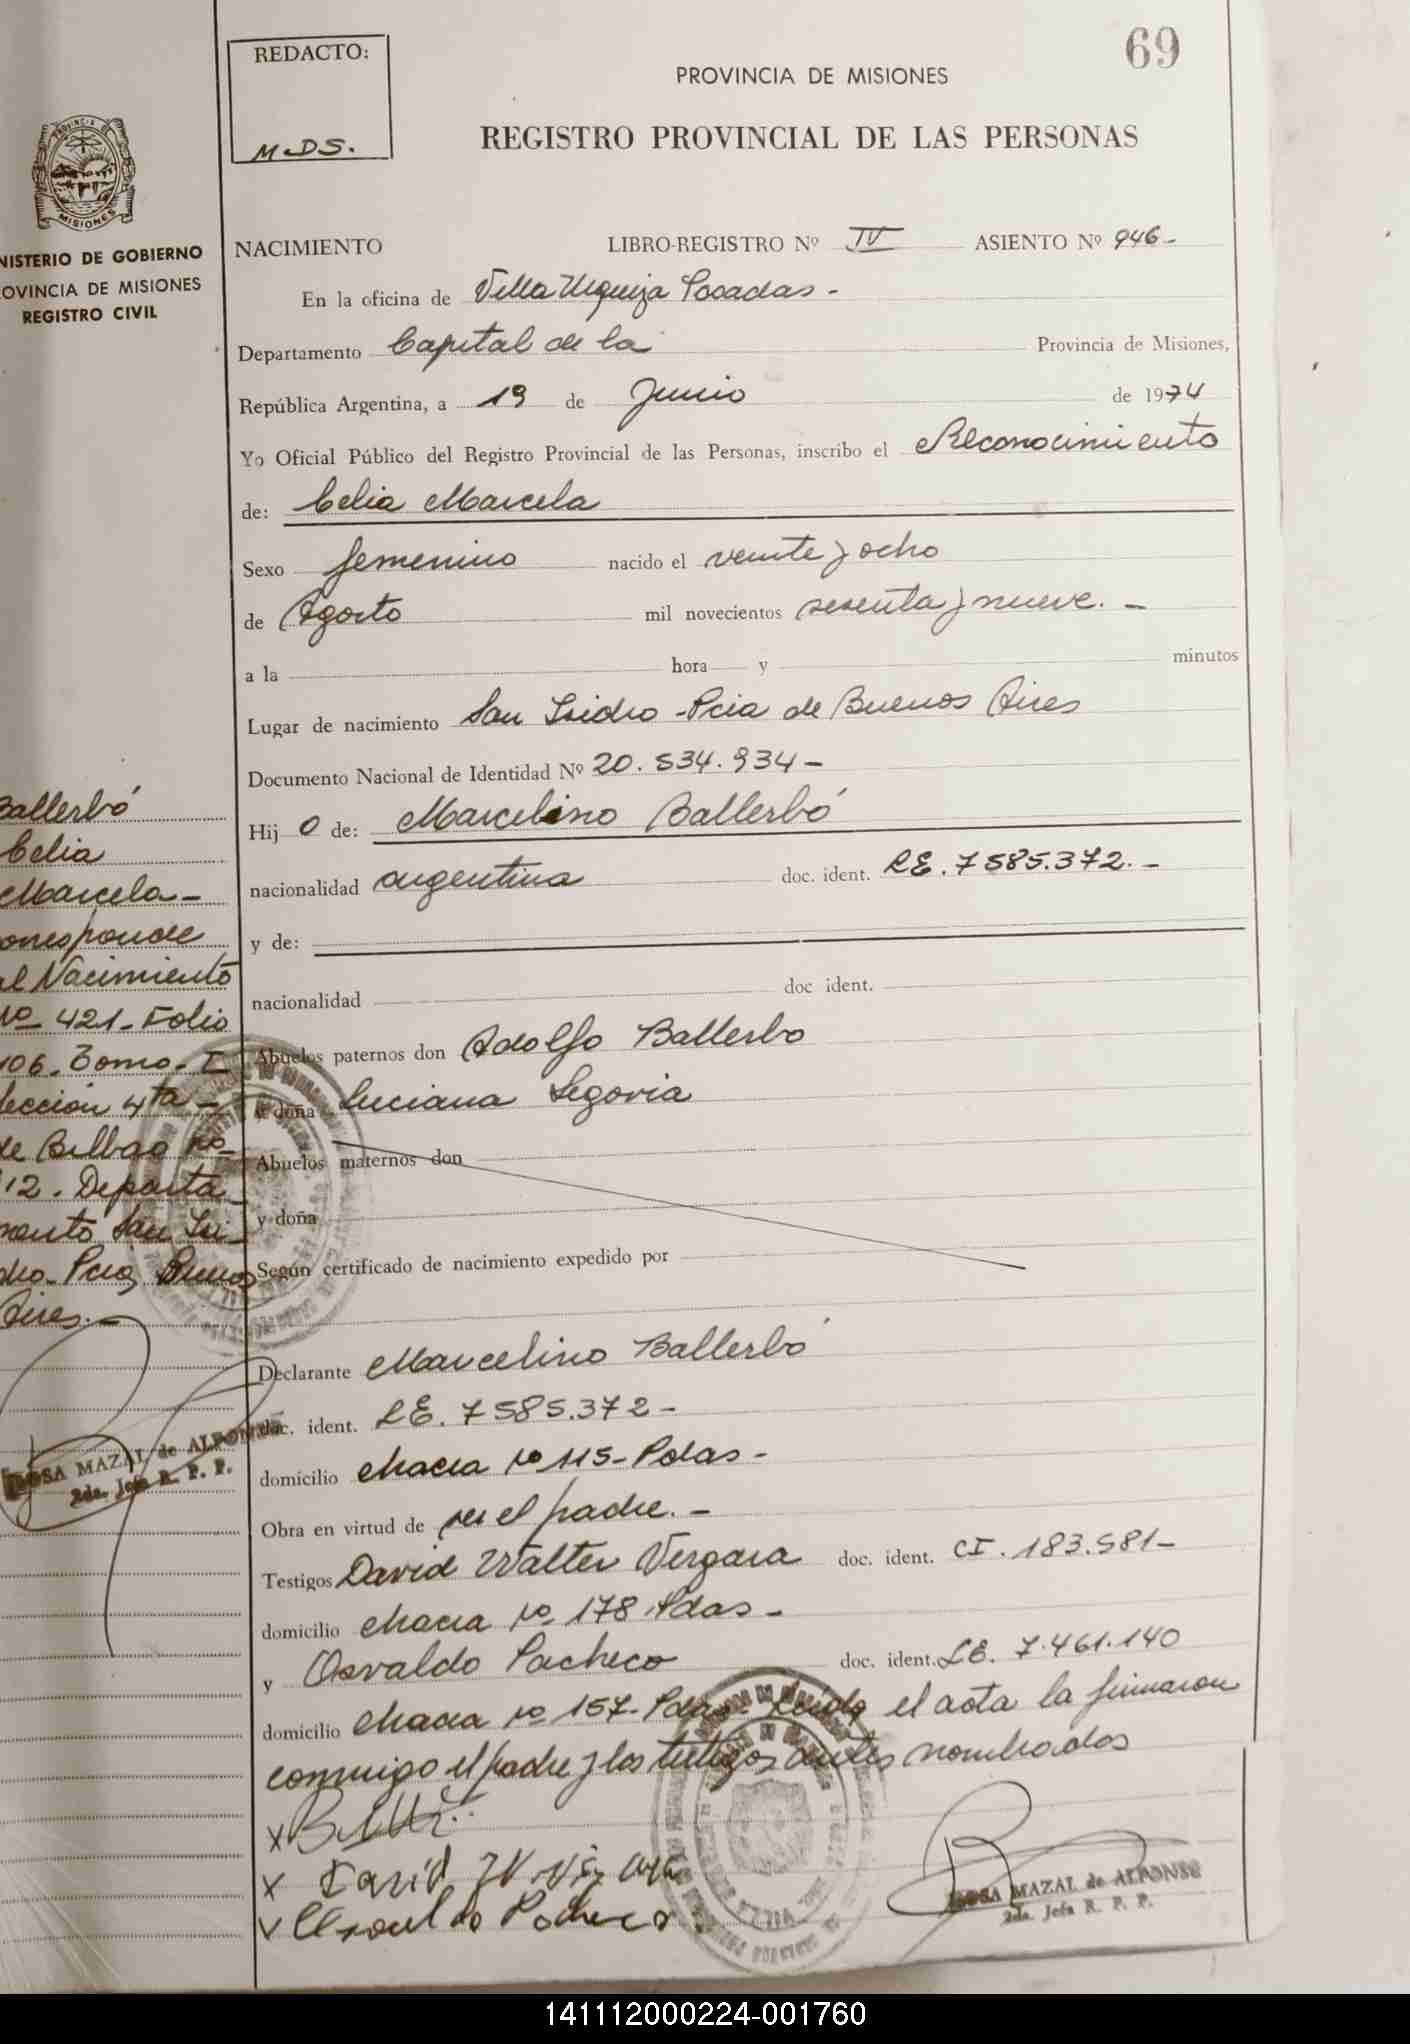 69
REDACTO:
M.D.S.
PROVINCIA DE MISIONES
REGISTRO PROVINCIAL DE LAS PERSONAS
PROVINCIA DE
MISIONES
NISTERIO DE GOBIERNO
OVINCIA DE MISIONES
REGISTRO CIVIL
NACIMIENTO LIBRO-REGISTRO Nº IV ASIENTO Nº 946-
En la oficina de Villa Urquiza Posadas -
Departamento Capital de la Provincia de Misiones,
República Argentina, a 19 de Junio de 1974
Yo Oficial Público del Registro Provincial de las Personas, inscribo el Reconocimiento
de: Celia Marcela
Sexo femenino nacido el veinte y ocho
de Agosto mil novecientos sesenta y nueve. -
a la hora y minutos
Lugar de nacimiento San Isidro - Pcia de Buenos Aires
Documento Nacional de Identidad Nº 20.534.934-
Hij O de: Marcelino Ballerbó
nacionalidad argentina doc. ident. LE. 7585.372. -
y de:
nacionalidad doc ident.
Abuelos paternos don Adolfo Ballerbo
y doña Luciana Segovia
Abuelos maternos don
y doña
Según certificado de nacimiento expedido por
Declarante Marcelino Ballerbó
doc. ident. LE. 7585.372-
domicilio chacra nº 115- Pdas-
Obra en virtud de ser el padre. -
Testigos David Walter Vergara doc. ident. CI. 183.581-
domicilio chacra nº 178 Pdas -
y Osvaldo Pacheco doc. ident. LE. 7.461.140
domicilio chacra nº 157- Pdas- Leida el acta la firmaron
conmigo el padre y los testigos antes nombrados
x
x David W. Vergara
x Osvaldo Pacheco
ROSA MAZAL de ALFONSO
2da. Jefa R. P. P.
Ballerbó
Celia
Marcela -
orresponde
al Nacimiento
Nº 421- Folio
106. Tomo - I
Sección 4ta -
de Bilbao nº
12. Departa-
mento San Isi-
dro- Pcia, Buenos
Aires. -
ROSA MAZAL de ALFONSO
2da. Jefa R. P. P.
141112000224-001760